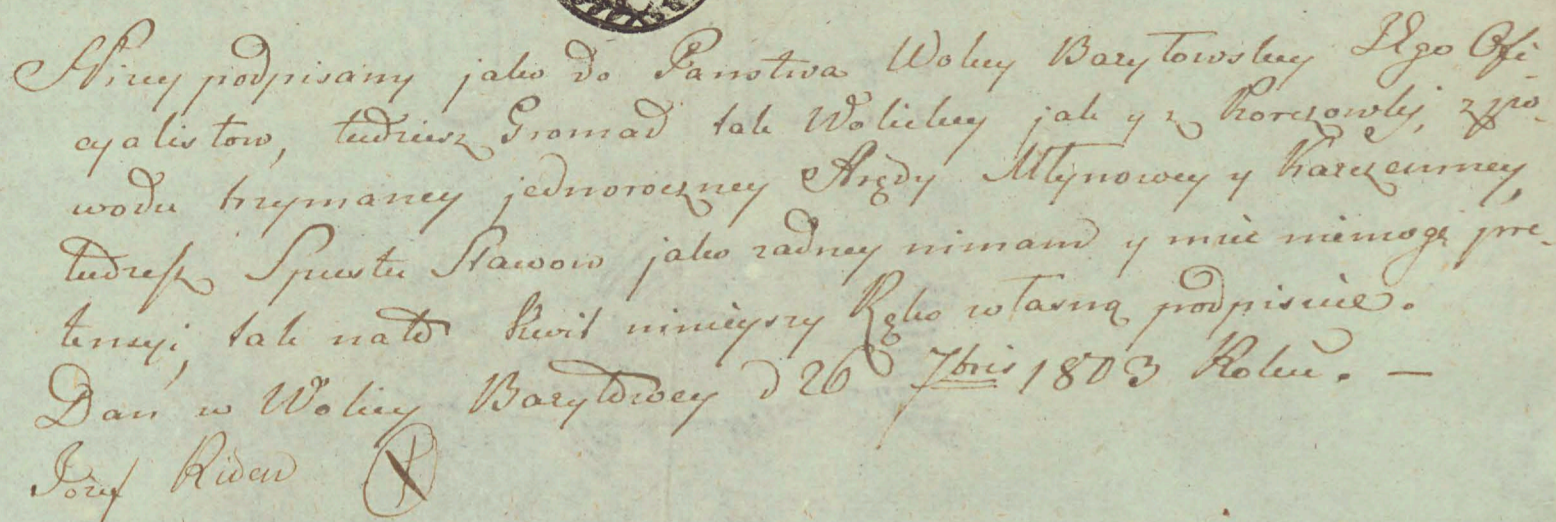 Nizey podpisany jako do Panstwa Wolicy Baryłowskey Iego Ofi-
cyalistow, tudziesz Gromad tak Wolickey jak y z Korczowkÿ, z po-
wodu trzymaney jednoroczney Arędy Młynowey y Karczemney,
tudzesz Spustu Stawow jako zadney nimam y miec niemogę pre-
tensyi, tak nato kwit ninieyszy Ręko własną podpisuie.
Dan w Wolicy Baryłowey d 26 7bris 1803 Roku. —
Jozef